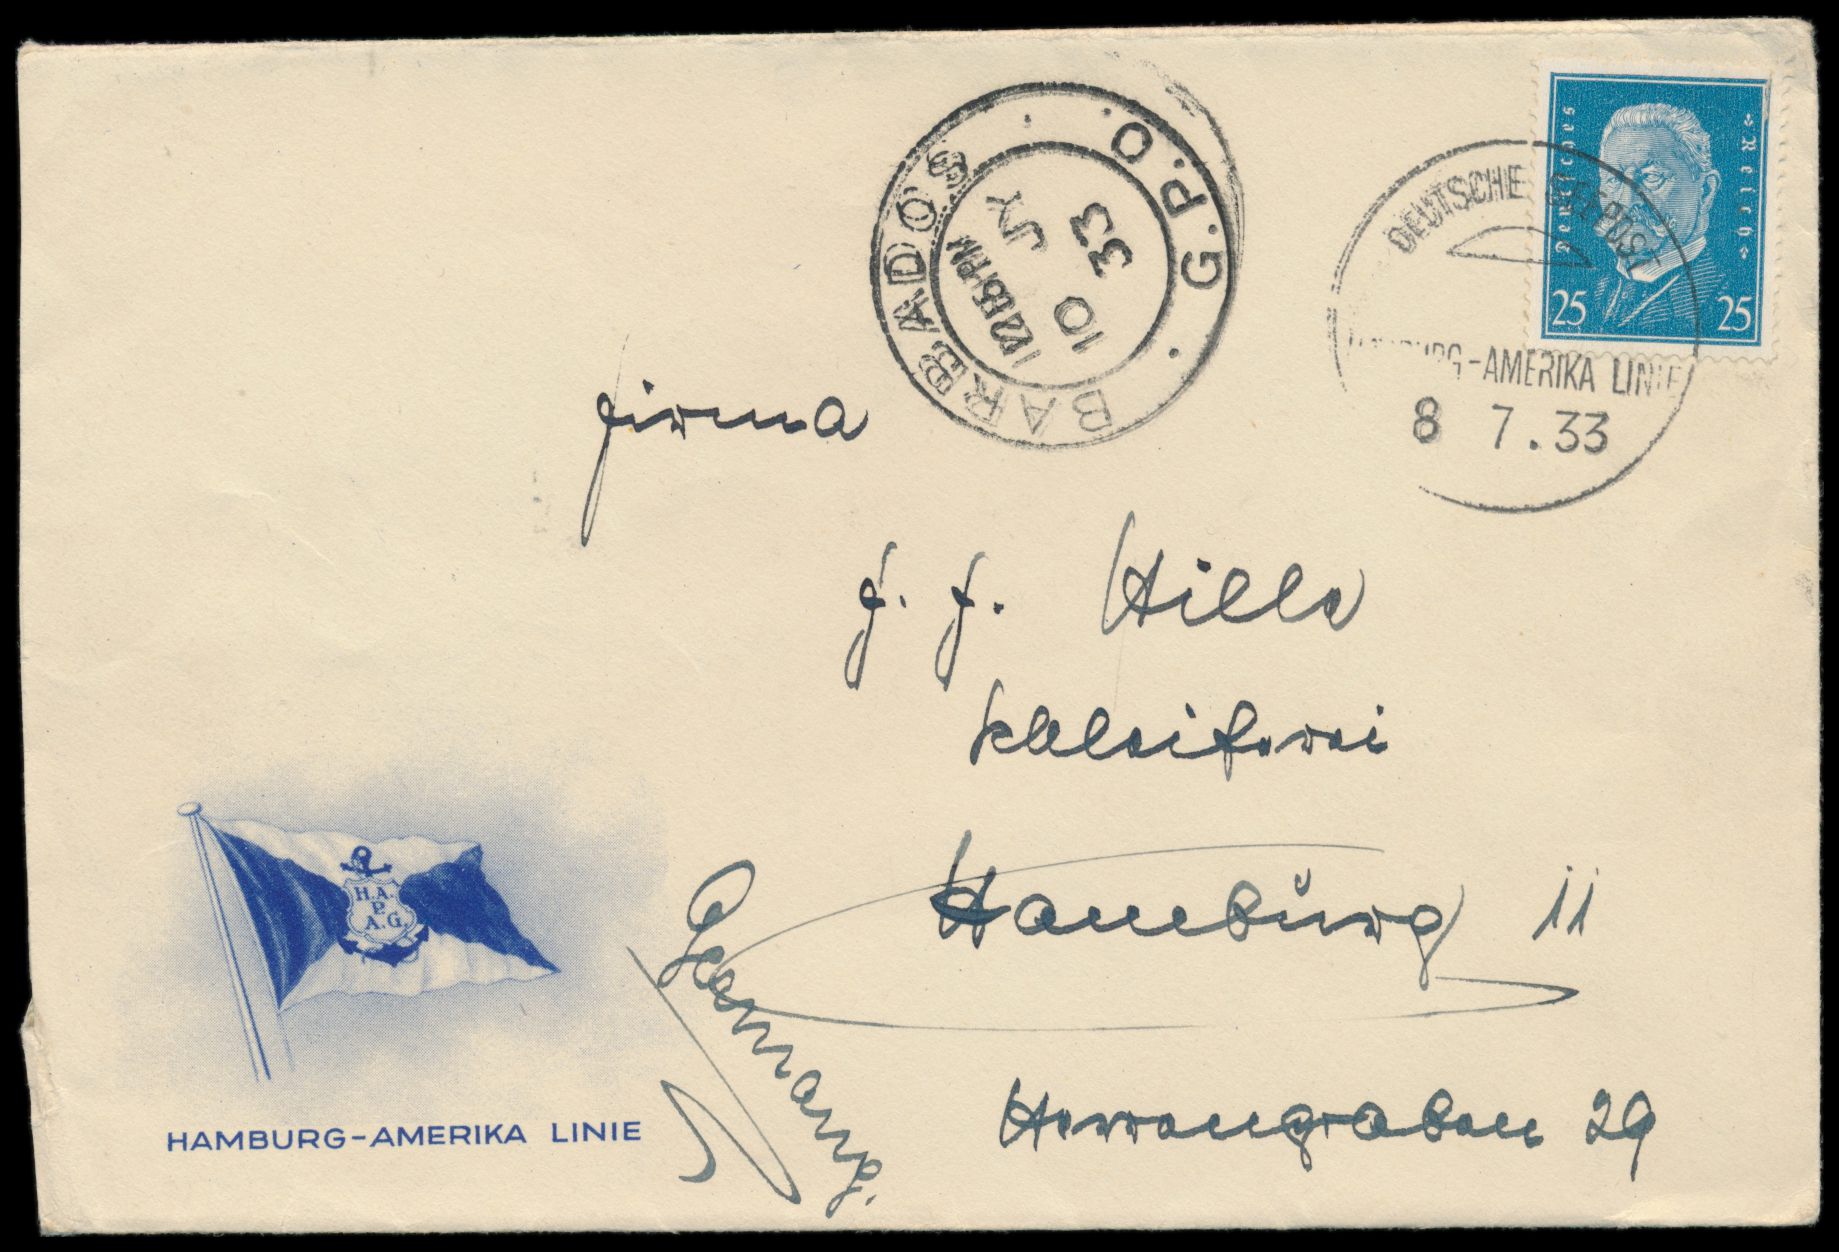 Deutsches Reich
25 25
DEUTSCHE SEEPOST
HAMBURG-AMERIKA LINIE
8 7.33
BARBADOS
G.P.O.
12 55 PM
JY
10
33
Firma
J. J. Hille
Hamburg 11
Herrengraben 29
Germany.
H.A.
P.
A.G.
HAMBURG-AMERIKA LINIE